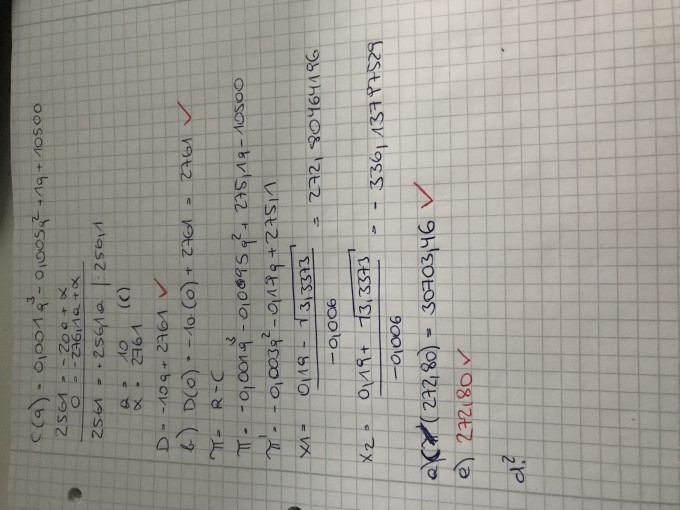 C(q) = 0,001q³ - 0,0005q² + 1q + 10500
2561 = -20a + α
0 = -276,1a + α
2561 = +256,1a |:256,1
a = 10
α = 2761 (c)
D = -10q + 2761 ✓
b) D(0) = -10(0) + 2761 = 2761 ✓
π = R-C
π = -0,001q³ - 0,0095q² + 275,1q - 10500
π' = -0,003q² - 0,19q + 275,1
x1 = 0,19 - √3,3373 / -0,006 = 272,80464196
x2 = 0,19 + √3,3373 / -0,006 = -336,13797529
a) (272,80) = 30703,46 ✓
e) 272,80 ✓
d?